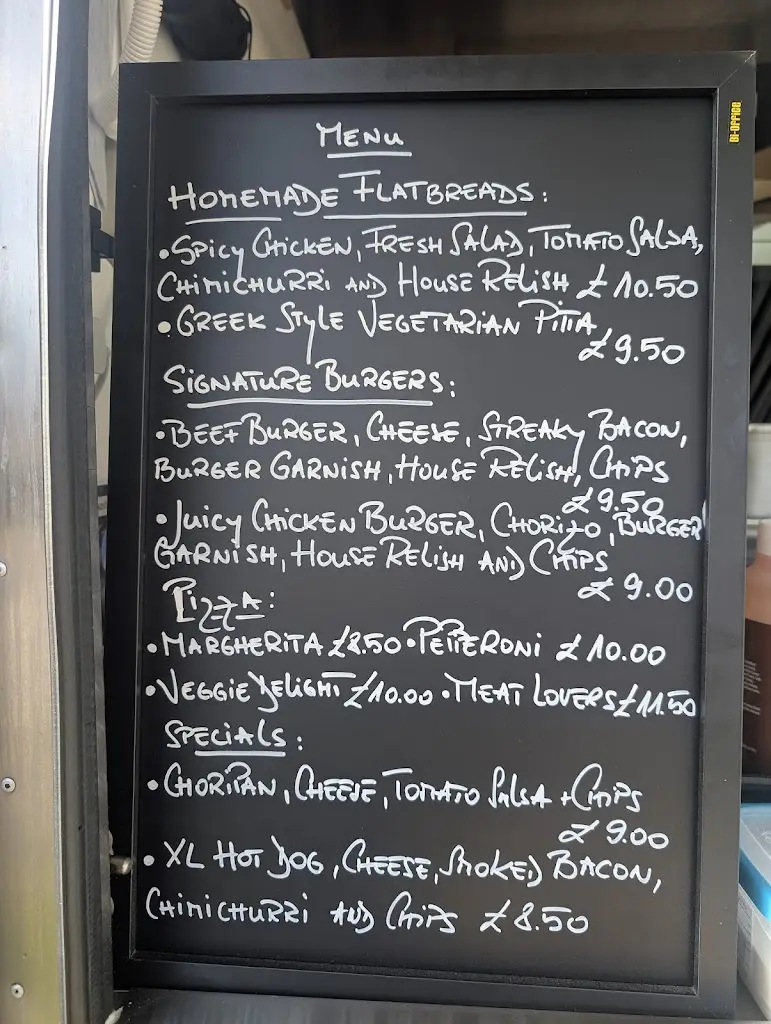 BI-OFFICE
MENU
HOMEMADE FLATBREADS:
•SPICY CHICKEN, FRESH SALAD, TOMATO SALSA,
CHIMICHURRI AND HOUSE RELISH £10.50
•GREEK STYLE VEGETARIAN PITTA
£9.50
SIGNATURE BURGERS:
•BEEF BURGER, CHEESE, STREAKY BACON,
BURGER GARNISH, HOUSE RELISH, CHIPS
£9.50
•JUICY CHICKEN BURGER, CHORIZO, BURGER
GARNISH, HOUSE RELISH AND CHIPS
£9.00
PIZZA:
•MARGHERITA £8.50 •PEPPERONI £10.00
•VEGGIE DELIGHT £10.00 •MEAT LOVERS £11.50
SPECIALS:
•CHORIPAN, CHEESE, TOMATO SALSA + CHIPS
£9.00
•XL HOT DOG, CHEESE, SMOKED BACON,
CHIMICHURRI AND CHIPS £8.50